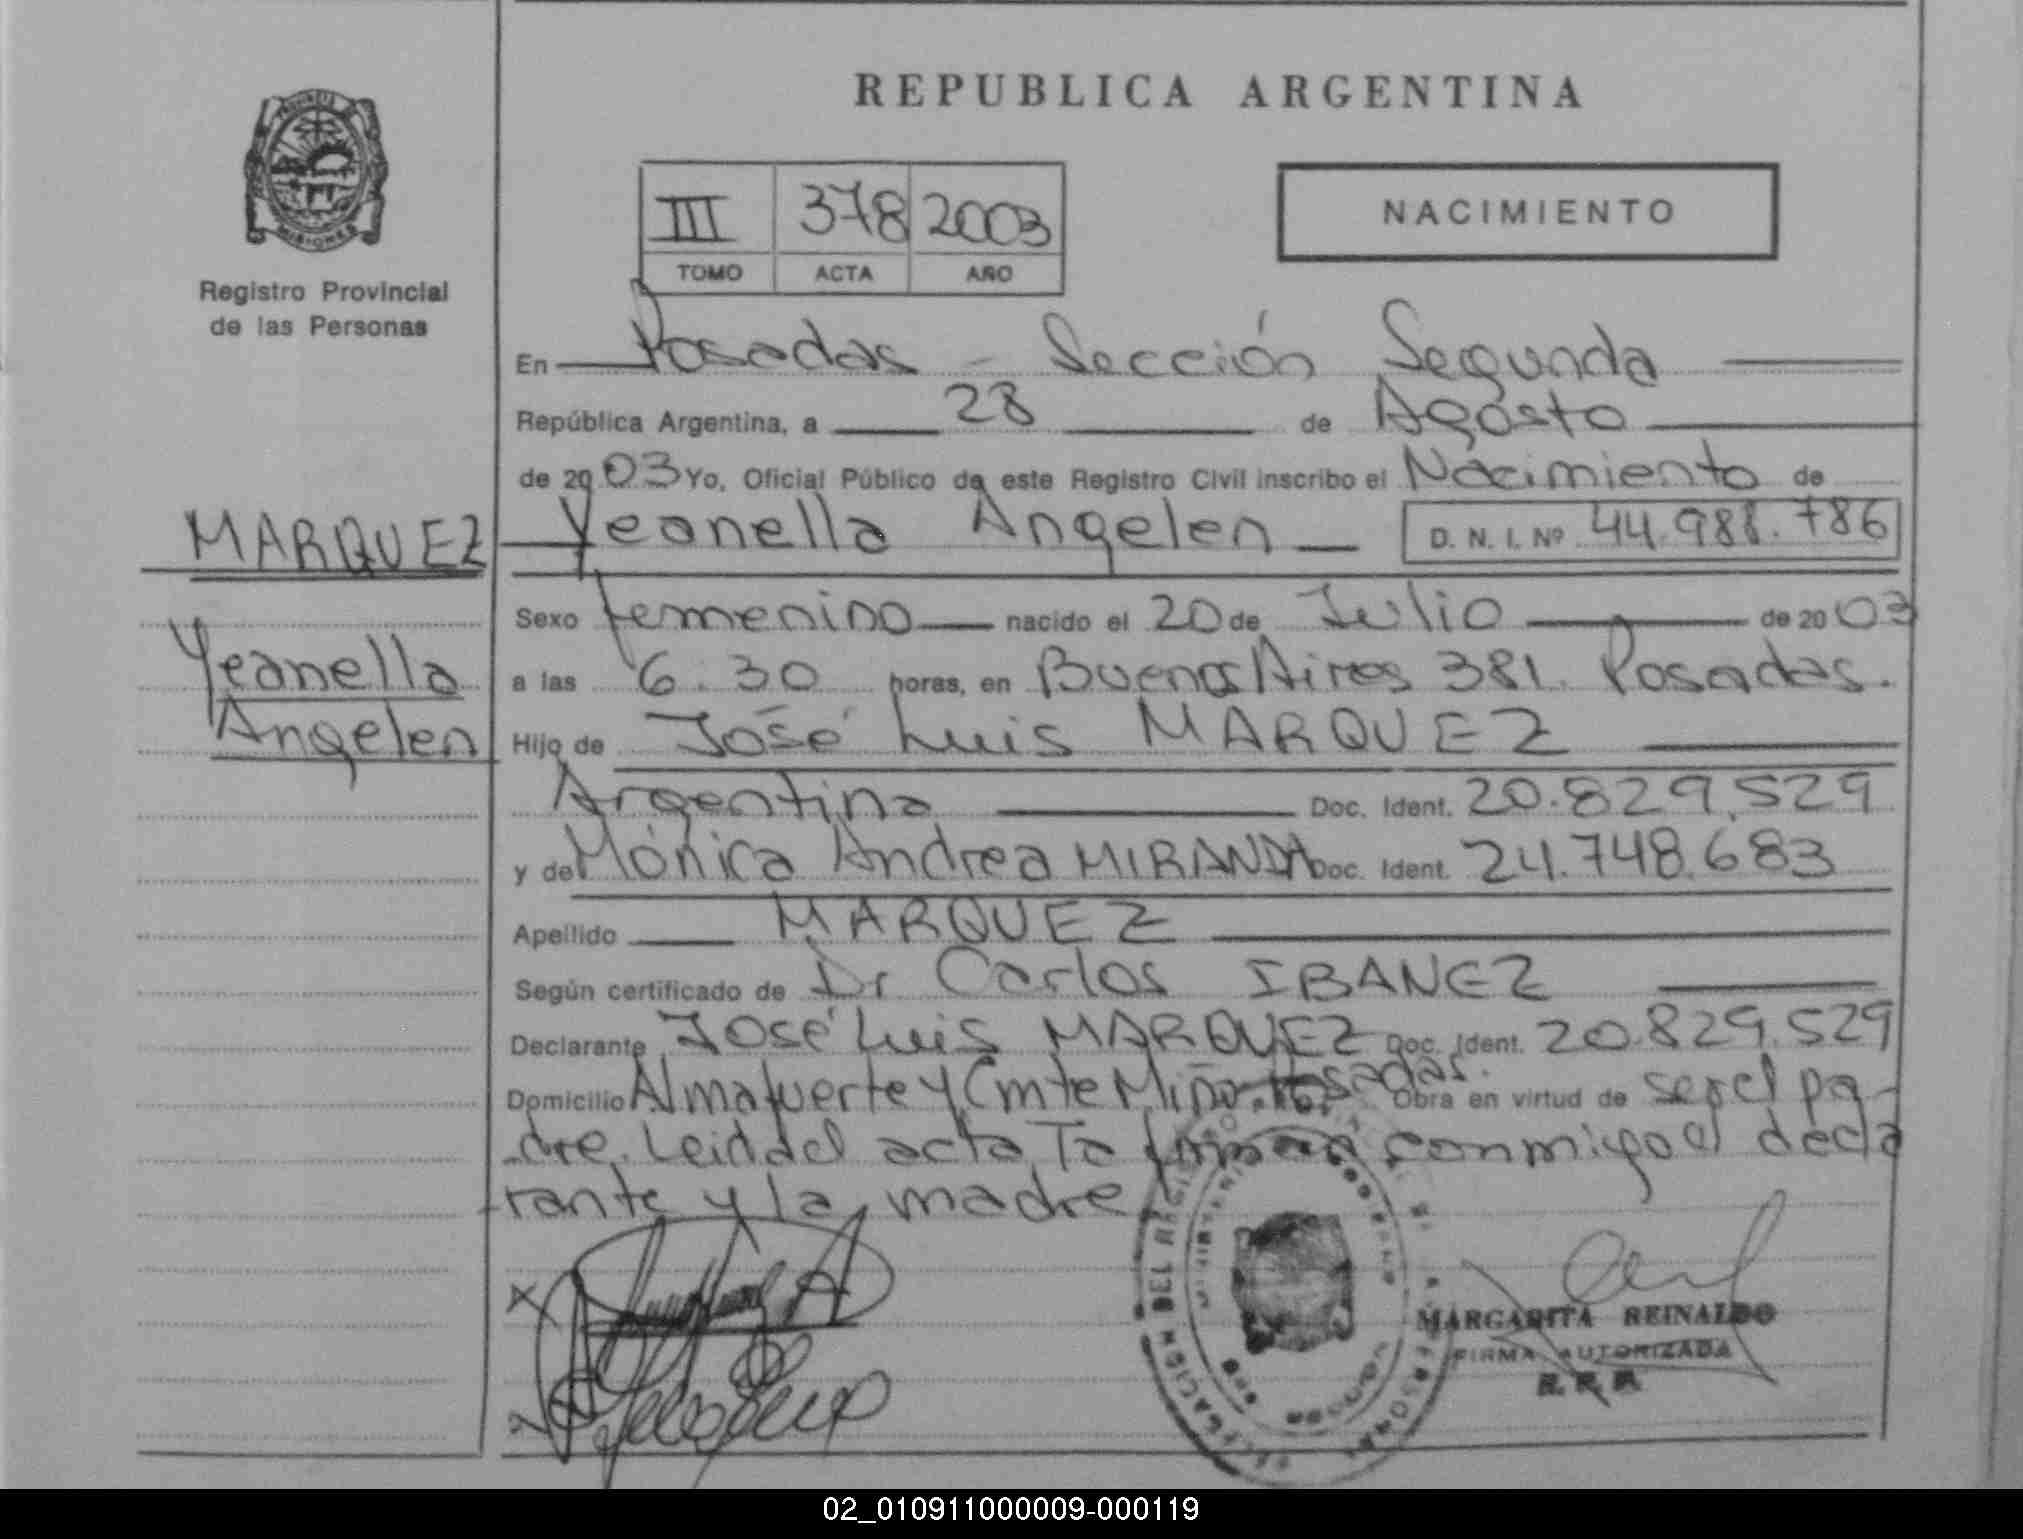 REPUBLICA ARGENTINA
MISIONES
Registro Provincial
de las Personas
III 378 2003
TOMO ACTA AÑO
NACIMIENTO
En Posadas - Sección Segunda
República Argentina, a 28 de Agosto
de 2003 Yo, Oficial Público de este Registro Civil inscribo el Nacimiento de
MARQUEZ Yeanella Angelen D. N. I. Nº 44.988.786
Sexo femenino nacido el 20 de Julio de 2003
Yeanella
a las 6.30 horas, en Buenos Aires 381. Posadas.
Angelen
Hijo de José Luis MARQUEZ
Argentina Doc. Ident. 20.829.529
y de Mónica Andrea MIRANDA Doc. Ident. 24.748.683
Apellido MARQUEZ
Según certificado de Dr Carlos IBANEZ
Declarante José Luis MARQUEZ Doc. Ident. 20.829.529
Domicilio Almafuerte y Cmte Miño. Posadas. Obra en virtud de ser el pa-
dre. Leida el acta, la firman conmigo el decla
rante y la madre
DELEGACION DEL REGISTRO
MARGARITA REINALDO
FIRMA AUTORIZADA
R. P. P.
02_010911000009-000119